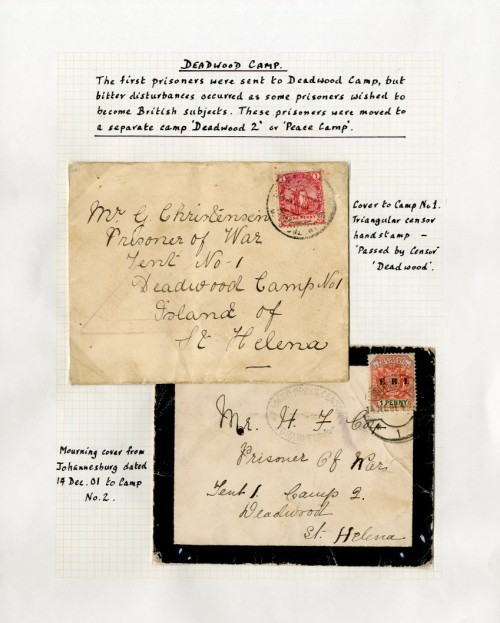 DEADWOOD CAMP.
The first prisoners were sent to Deadwood Camp, but
bitter disturbances occurred as some prisoners wished to
become British subjects. These prisoners were moved to
a separate camp 'Deadwood 2' or 'Peace Camp'.
Mr G. Christensen
Prisoner of War
Tent No-1
Deadwood Camp No1
Island of
St Helena
Cover to Camp No 1.
Triangular censor
handstamp –
'Passed by Censor'
'Deadwood'.
Mourning cover from
Johannesburg dated
14 Dec. 01 to Camp
No. 2.
E.R.I.
1 PENNY
Mr. H. F.
Prisoner Of War
Tent 1. Camp 2.
Deadwood
St. Helena